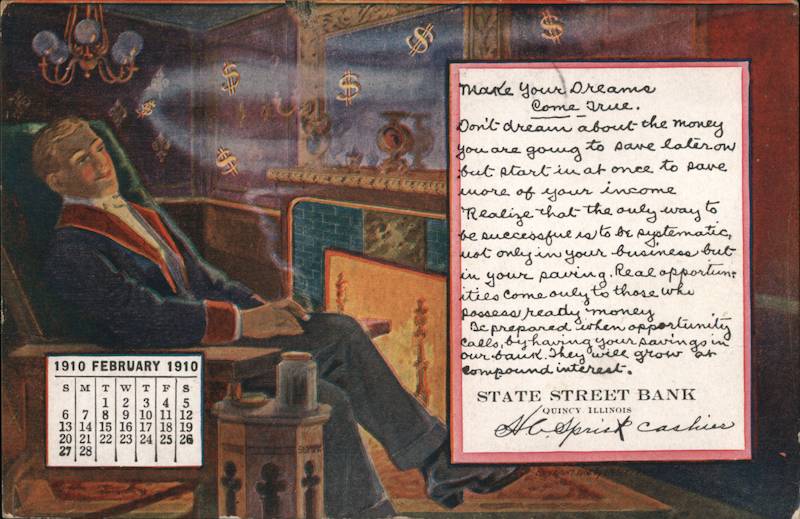 Make Your Dreams
Come True.
Don't dream about the money
you are going to save later on
but start in at once to save
more of your income
Realize that the only way to
be successful is to be systematic,
not only in your business but
in your saving. Real opportun-
ities come only to those who
possess ready money
Be prepared when opportunity
calls, by having your savings in
our bank. They will grow at
compound interest.
STATE STREET BANK
QUINCY, ILLINOIS
H.C. Sprick cashier
1910 FEBRUARY 1910
S M T W T F S
1 2 3 4 5
6 7 8 9 10 11 12
13 14 15 16 17 18 19
20 21 22 23 24 25 26
27 28